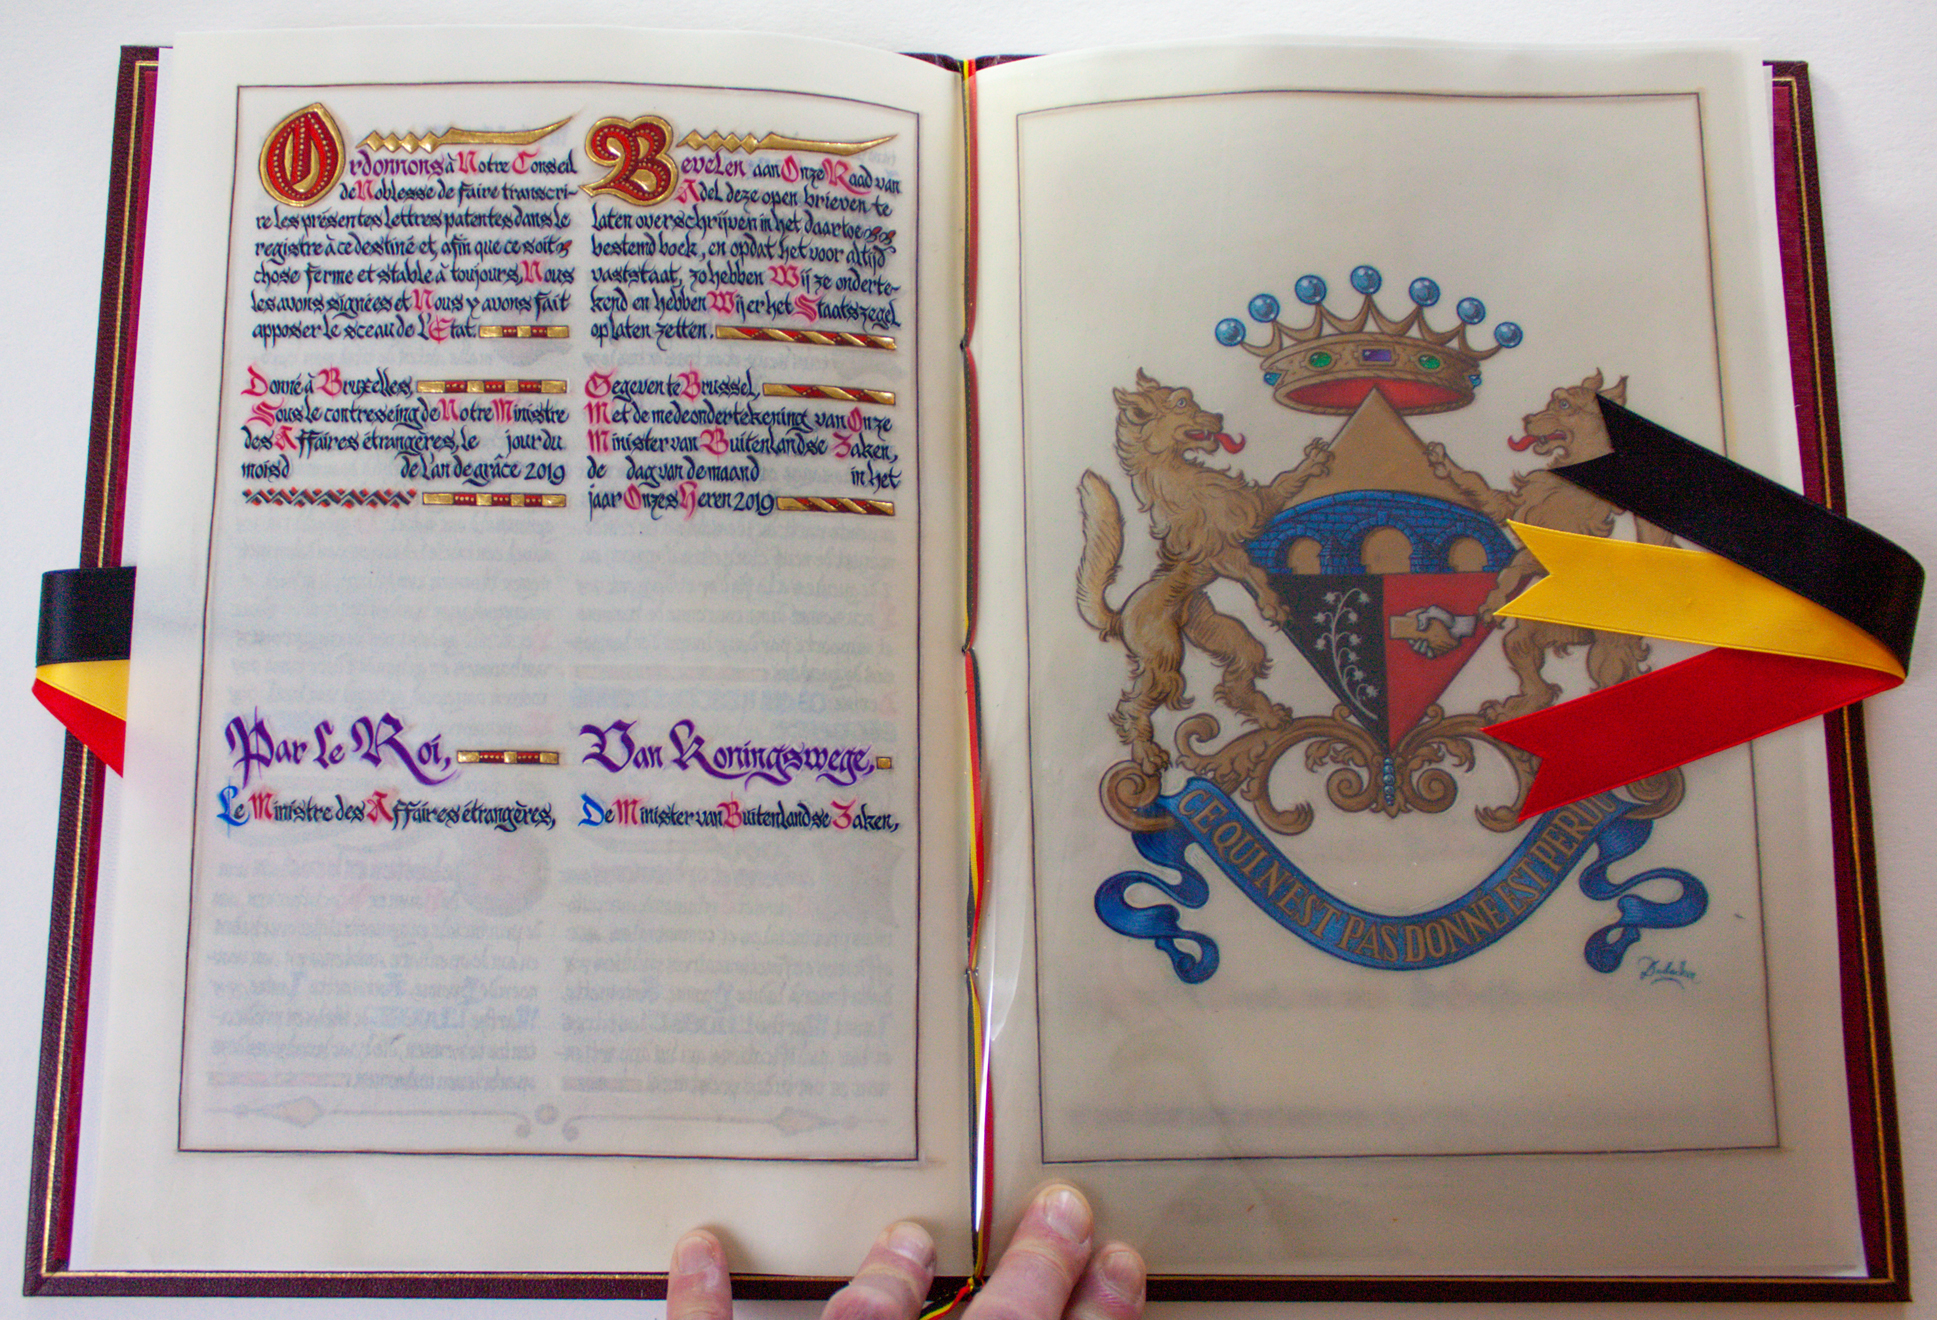 Ordonnons à Notre Conseil
de Noblesse de faire transcri-
re les présentes lettres patentes dans le
registre à ce destiné et, afin que ce soit
chose ferme et stable à toujours, Nous
les avons signées et Nous y avons fait
apposer le sceau de l'Etat.
Donné à Bruxelles,
Sous le contreseing de Notre Ministre
des Affaires étrangères, le jour du
mois d de l'an de grâce 2019
Par le Roi,
Le Ministre des Affaires étrangères,
Bevelen aan Onze Raad van
Adel deze open brieven te
laten overschrijven in het daartoe
bestemd boek, en opdat het voor altijd
vaststaat, zo hebben Wij ze onderte-
kend en hebben Wij er het Staatszegel
op laten zetten.
Gegeven te Brussel,
Met de medeondertekening van Onze
Minister van Buitenlandse Zaken,
de dag van de maand in het
jaar Onzes Heren 2019
Van Koningswege,
De Minister van Buitenlandse Zaken,
CE QUI N'EST PAS DONNÉ EST PERDU